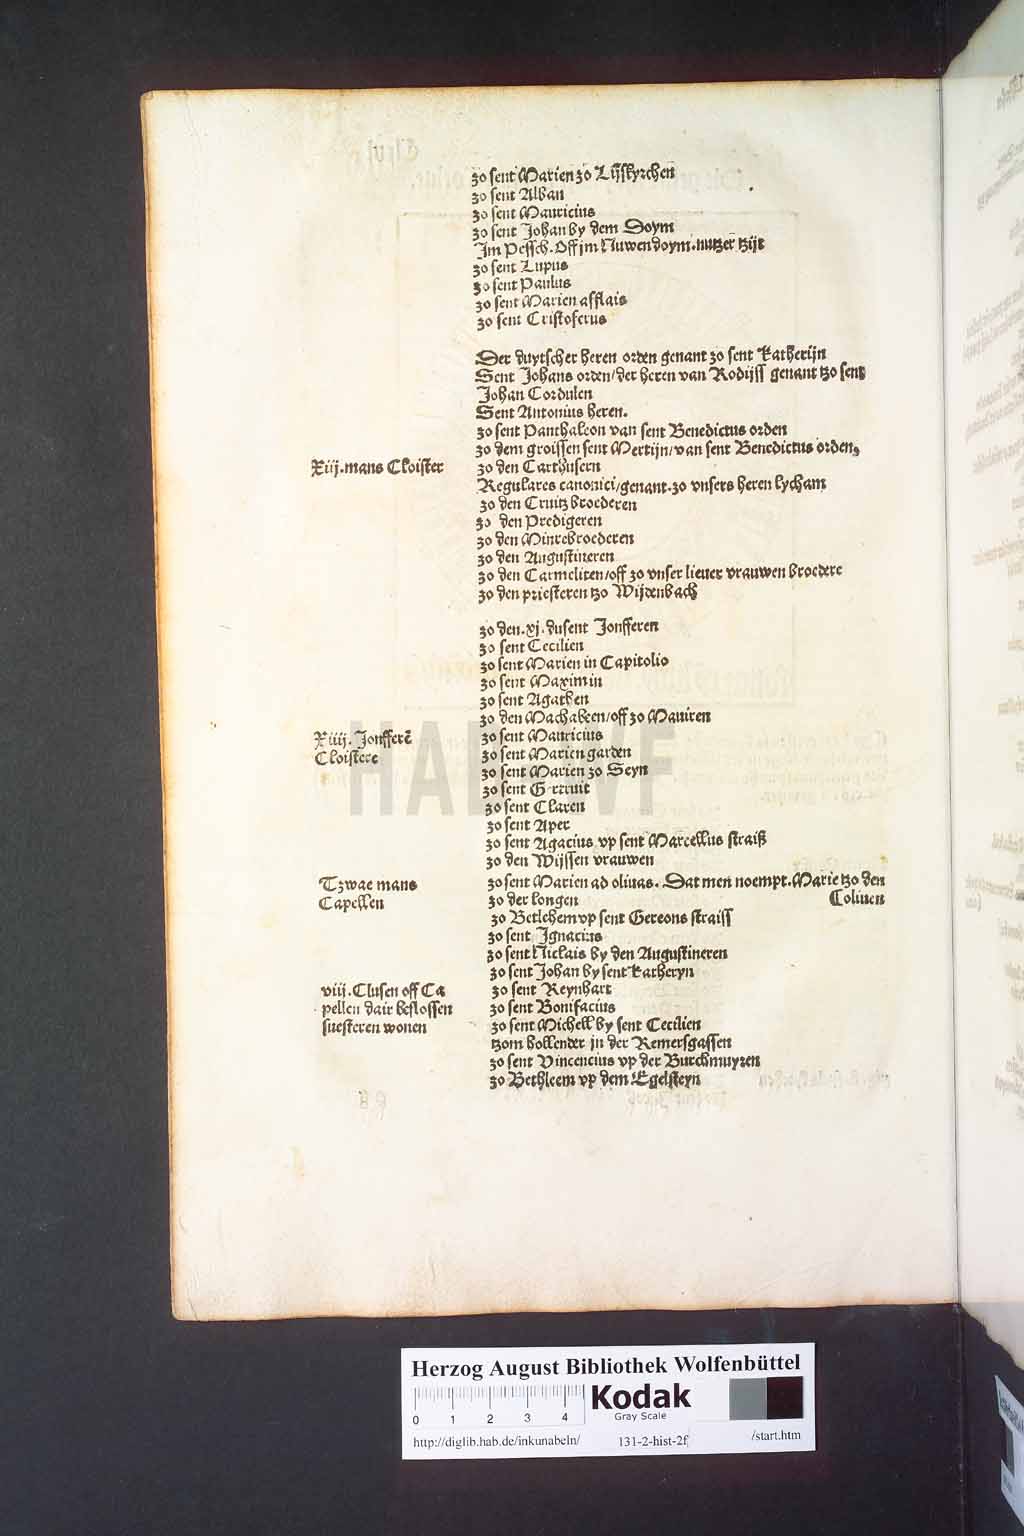 zo sent Marien zo Lijskyrchen
zo sent Alban
zo sent Mauricius
zo sent Johan by dem Doym
Jm Pessch. Off jm Nuwen doym. nutzer tzijt
zo sent Lupus
zo sent Paulus
zo sent Marien afflais
zo sent Cristoferus
Der duytscher heren orden genant zo sent Katherijn
Sent Johans orden/der heren van Rodijss genant tzo sent
Johan Cordulen
Sent Antonius heren.
zo sent Panthaleon van sent Benedictus orden
zo dem groissen sent Mertijn/van sent Benedictus orden,
Xiij.mans Cloister
zo den Carthusern
Regulares canonici/genant.zo vnsers heren lycham
zo den Cruitzbroederen
zo den Predigeren
zo den Minrebroederen
zo den Augustineren
zo den Carmeliten/off zo vnser lieuer vrauwen broedere
zo den priesteren tzo Wijdenbach
zo den.xj.dusent Jonfferen
zo sent Cecilien
zo sent Marien in Capitolio
zo sent Maximin
zo sent Agathen
zo den Machabeen/off zo Mauiren
Xiiij. Jonfferē
Cloistere
zo sent Mauricius
zo sent Marien garden
zo sent Marien zo Seyn
zo sent Gertruit
zo sent Claren
zo sent Aper
zo sent Agacius vp sent Marcellus straiß
zo den Wijssen vrauwen
Tzwae mans
Capellen
zo sent Marien ad oliuas. Dat men noempt. Marie tzo den
zo der longen Coliuen
zo Betlehem vp sent Gereons straiss
zo sent Jgnacius
zo sent Niclais by den Augustineren
zo sent Johan by sent Katheryn
viij.Clusen off Ca
pellen dair beslossen
suesteren wonen
zo sent Reynhart
zo sent Bonifacius
zo sent Michell by sent Cecilien
tzom bollender jn der Remersgassen
zo sent Vincencius vp der Burchmuyren
zo Bethleem vp dem Egelsteyn
HAB WF
Herzog August Bibliothek Wolfenbüttel
0 1 2 3 4
Kodak
Gray Scale
http://diglib.hab.de/inkunabeln/ 131-2-hist-2f /start.htm